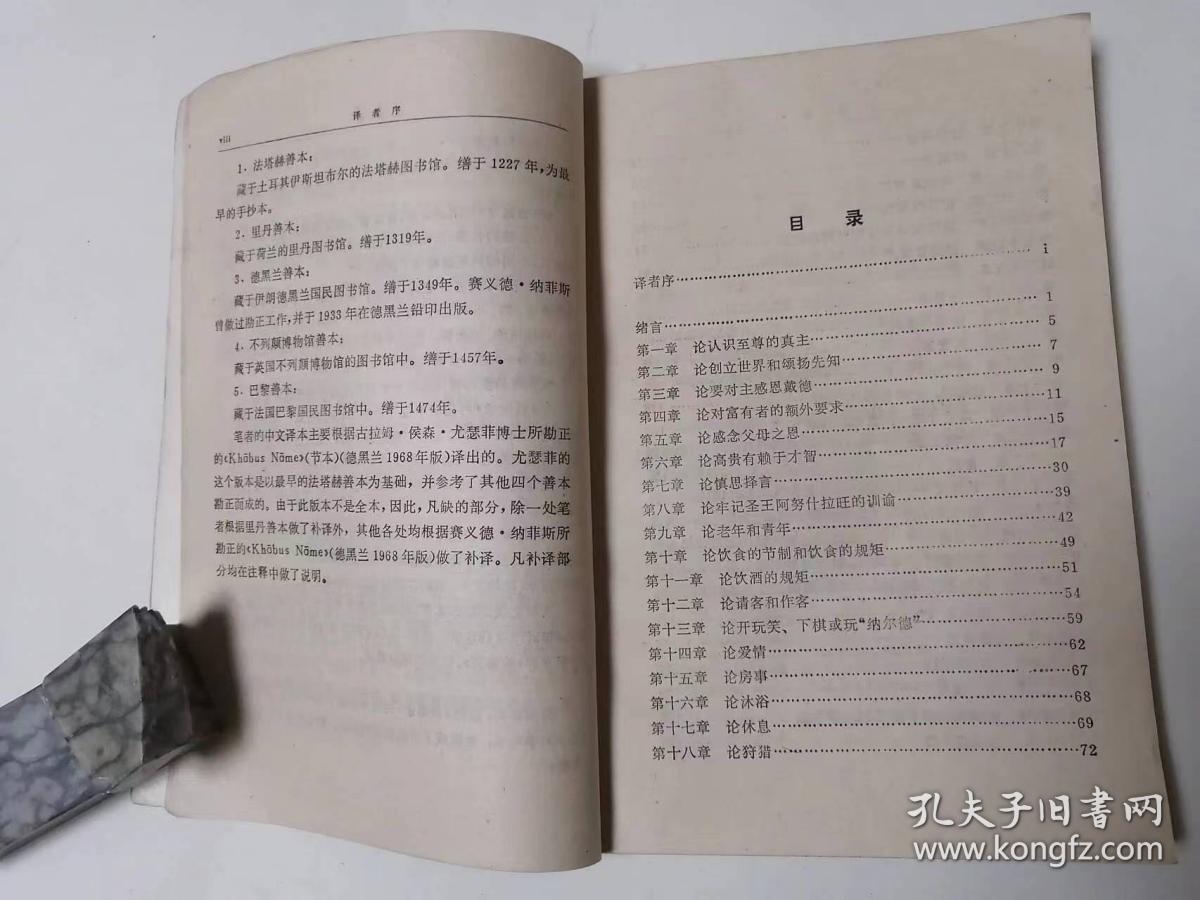 viii
译者序
1．法塔赫善本：
藏于土耳其伊斯坦布尔的法塔赫图书馆。缮于1227年，为最
早的手抄本。
2．里丹善本：
藏于荷兰的里丹图书馆。缮于1319年。
3．德黑兰善本：
藏于伊朗德黑兰国民图书馆。缮于1349年。赛义德·纳菲斯
曾做过勘正工作，并于1933年在德黑兰铅印出版。
4．不列颠博物馆善本：
藏于英国不列颠博物馆的图书馆中。缮于1457年。
5．巴黎善本：
藏于法国巴黎国民图书馆中。缮于1474年。
笔者的中文译本主要根据古拉姆·侯森·尤瑟菲博士所勘正
的《Khōbus Nōme》（节本）（德黑兰1968年版）译出的。尤瑟菲的
这个版本是以最早的法塔赫善本为基础，并参考了其他四个善本
勘正而成的。由于此版本不是全本，因此，凡缺的部分，除一处笔
者根据里丹善本做了补译外，其他各处均根据赛义德·纳菲斯所
勘正的《Khōbus Nōme》（德黑兰1968年版）做了补译。凡补译部
分均在注释中做了说明。
目录
译者序……i
绪言……1
第一章 论认识至尊的真主……5
第二章 论创立世界和颂扬先知……7
第三章 论要对主感恩戴德……9
第四章 论对富有者的额外要求……11
第五章 论感念父母之恩……15
第六章 论高贵有赖于才智……17
第七章 论慎思择言……30
第八章 论牢记圣王阿努什拉旺的训谕……39
第九章 论老年和青年……42
第十章 论饮食的节制和饮食的规矩……49
第十一章 论饮酒的规矩……51
第十二章 论请客和作客……54
第十三章 论开玩笑、下棋或玩“纳尔德”……59
第十四章 论爱情……62
第十五章 论房事……67
第十六章 论沐浴……68
第十七章 论休息……69
第十八章 论狩猎……72
孔夫子旧书网
www.kongfz.com